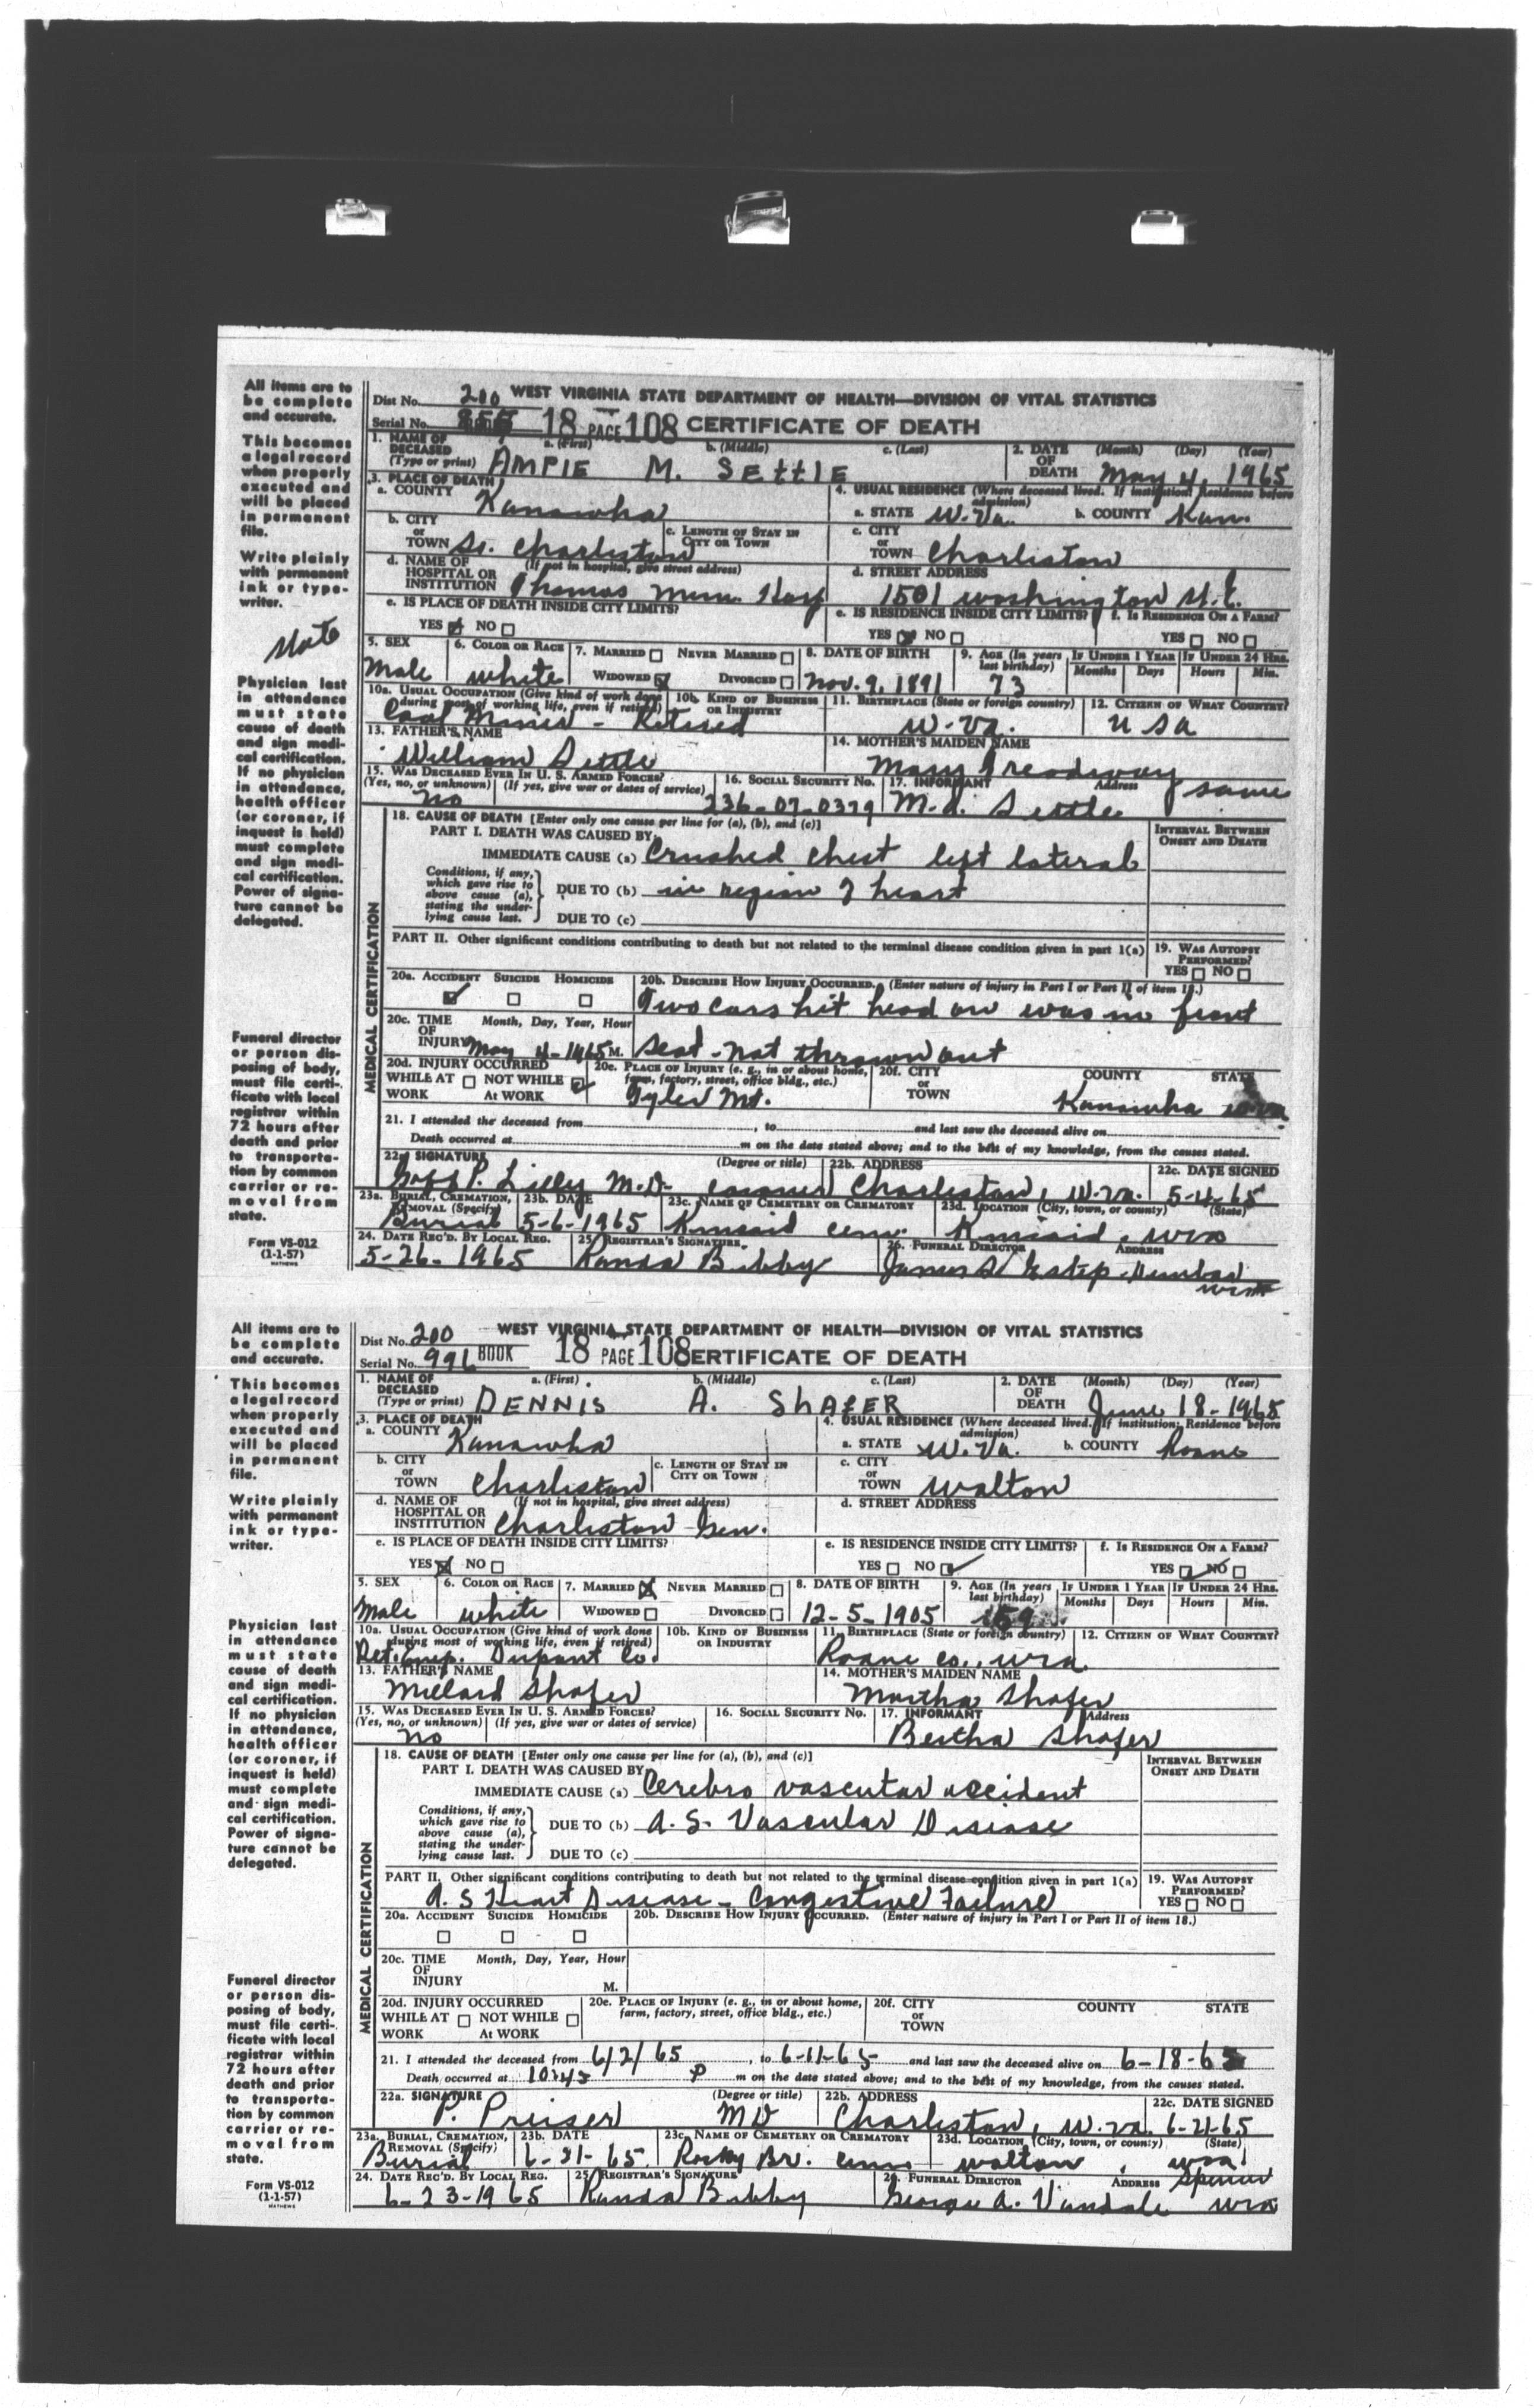 All items are to
be complete
and accurate.
This becomes
a legal record
when properly
executed and
will be placed
in permanent
file.
Write plainly
with permanent
ink or type-
writer.
Physician last
in attendance
must state
cause of death
and sign medi-
cal certification.
If no physician
in attendance,
health officer
(or coroner, if
inquest is held)
must complete
and sign medi-
cal certification.
Power of signa-
ture cannot be
delegated.
Funeral director
or person dis-
posing of body,
must file certi-
ficate with local
registrar within
72 hours after
death and prior
to transporta-
tion by common
carrier or re-
moval from
state.
Form VS-012
(1-1-57)
MATHEWS
Dist No. 200 WEST VIRGINIA STATE DEPARTMENT OF HEALTH—DIVISION OF VITAL STATISTICS
Serial No. 18 PAGE 108 CERTIFICATE OF DEATH
1. NAME OF DECEASED (Type or print) a. (First) b. (Middle) c. (Last) AMPIE M. SEttlE
2. DATE OF DEATH (Month) (Day) (Year) May 4, 1965
3. PLACE OF DEATH a. COUNTY Kanawha
4. USUAL RESIDENCE (Where deceased lived. If institution: Residence before admission) a. STATE W.Va. b. COUNTY Kan.
b. CITY or TOWN So. Charleston c. LENGTH OF STAY IN CITY OR TOWN
c. CITY or TOWN Charleston
d. NAME OF HOSPITAL OR INSTITUTION (If not in hospital, give street address) Thomas Mem. Hosp
d. STREET ADDRESS 1501 Washington St. E.
e. IS PLACE OF DEATH INSIDE CITY LIMITS? YES NO
e. IS RESIDENCE INSIDE CITY LIMITS? YES NO f. IS RESIDENCE ON A FARM? YES NO
5. SEX Male 6. COLOR OR RACE white 7. MARRIED NEVER MARRIED WIDOWED DIVORCED 8. DATE OF BIRTH Nov. 9, 1891 9. AGE (In years last birthday) 73 IF UNDER 1 YEAR Months Days IF UNDER 24 HRS. Hours Min.
10a. USUAL OCCUPATION (Give kind of work done during most of working life, even if retired) Coal Miner - Retired 10b. KIND OF BUSINESS OR INDUSTRY 11. BIRTHPLACE (State or foreign country) W.Va. 12. CITIZEN OF WHAT COUNTRY? USA
13. FATHER'S NAME William Settle 14. MOTHER'S MAIDEN NAME Mary Treadway
15. WAS DECEASED EVER IN U. S. ARMED FORCES? (Yes, no, or unknown) (If yes, give war or dates of service) no 16. SOCIAL SECURITY NO. 236-07-0379 17. INFORMANT Address Settle same
18. CAUSE OF DEATH [Enter only one cause per line for (a), (b), and (c)] INTERVAL BETWEEN ONSET AND DEATH
PART I. DEATH WAS CAUSED BY:
IMMEDIATE CAUSE (a) Crushed chest left lateral
Conditions, if any, which gave rise to above cause (a), stating the underlying cause last.
DUE TO (b) in region of heart
DUE TO (c)
PART II. Other significant conditions contributing to death but not related to the terminal disease condition given in part 1(a) 19. WAS AUTOPSY PERFORMED? YES NO
MEDICAL CERTIFICATION
20a. ACCIDENT SUICIDE HOMICIDE 20b. DESCRIBE HOW INJURY OCCURRED. (Enter nature of injury in Part I or Part II of item 18.)
Two cars hit head on was in front
seat - not thrown out
20c. TIME OF INJURY Month, Day, Year, Hour May 4-1965 M.
20d. INJURY OCCURRED WHILE AT WORK NOT WHILE At WORK 20e. PLACE OF INJURY (e. g., in or about home, farm, factory, street, office bldg., etc.) Tyler Mt. 20f. CITY or TOWN COUNTY STATE Kanawha
21. I attended the deceased from , to and last saw the deceased alive on
Death occurred at m on the date stated above; and to the best of my knowledge, from the causes stated.
22a SIGNATURE (Degree or title) Goff P. Lilly M.D. coroner 22b. ADDRESS Charleston, W.Va. 22c. DATE SIGNED 5-4-65
23a. BURIAL, CREMATION, REMOVAL (Specify) Burial 23b. DATE 5-6-1965 23c. NAME OF CEMETERY OR CREMATORY Kincaid cem. 23d. LOCATION (City, town, or county) (State) Kincaid, Wva
24. DATE REC'D. BY LOCAL REG. 5-26-1965 25. REGISTRAR'S SIGNATURE Bibby 26. FUNERAL DIRECTOR ADDRESS James Estep Dunbar
All items are to
be complete
and accurate.
This becomes
a legal record
when properly
executed and
will be placed
in permanent
file.
Write plainly
with permanent
ink or type-
writer.
Physician last
in attendance
must state
cause of death
and sign medi-
cal certification.
If no physician
in attendance,
health officer
(or coroner, if
inquest is held)
must complete
and sign medi-
cal certification.
Power of signa-
ture cannot be
delegated.
Funeral director
or person dis-
posing of body,
must file certi-
ficate with local
registrar within
72 hours after
death and prior
to transporta-
tion by common
carrier or re-
moval from
state.
Form VS-012
(1-1-57)
MATHEWS
Dist No. 200 WEST VIRGINIA STATE DEPARTMENT OF HEALTH—DIVISION OF VITAL STATISTICS
Serial No. 996 BOOK 18 PAGE 108 CERTIFICATE OF DEATH
1. NAME OF DECEASED (Type or print) a. (First) b. (Middle) c. (Last) DENNIS A. SHAFER
2. DATE OF DEATH (Month) (Day) (Year) June 18-1965
3. PLACE OF DEATH a. COUNTY Kanawha
4. USUAL RESIDENCE (Where deceased lived. If institution: Residence before admission) a. STATE W.Va. b. COUNTY Roane
b. CITY or TOWN Charleston c. LENGTH OF STAY IN CITY OR TOWN
c. CITY or TOWN Walton
d. NAME OF HOSPITAL OR INSTITUTION (If not in hospital, give street address) Charleston Gen.
d. STREET ADDRESS
e. IS PLACE OF DEATH INSIDE CITY LIMITS? YES NO
e. IS RESIDENCE INSIDE CITY LIMITS? YES NO f. IS RESIDENCE ON A FARM? YES NO
5. SEX Male 6. COLOR OR RACE white 7. MARRIED NEVER MARRIED WIDOWED DIVORCED 8. DATE OF BIRTH 12-5-1905 9. AGE (In years last birthday) 59 IF UNDER 1 YEAR Months Days IF UNDER 24 HRS. Hours Min.
10a. USUAL OCCUPATION (Give kind of work done during most of working life, even if retired) Ret. Emp. Dupont Co. 10b. KIND OF BUSINESS OR INDUSTRY 11. BIRTHPLACE (State or foreign country) Roane Co., Wva. 12. CITIZEN OF WHAT COUNTRY?
13. FATHER'S NAME Millard Shafer 14. MOTHER'S MAIDEN NAME Martha Shafer
15. WAS DECEASED EVER IN U. S. ARMED FORCES? (Yes, no, or unknown) (If yes, give war or dates of service) no 16. SOCIAL SECURITY NO. 17. INFORMANT Address Bertha Shafer
18. CAUSE OF DEATH [Enter only one cause per line for (a), (b), and (c)] INTERVAL BETWEEN ONSET AND DEATH
PART I. DEATH WAS CAUSED BY:
IMMEDIATE CAUSE (a) Cerebro vascular accident
Conditions, if any, which gave rise to above cause (a), stating the underlying cause last.
DUE TO (b) A. S. Vascular Disease
DUE TO (c)
PART II. Other significant conditions contributing to death but not related to the terminal disease condition given in part 1(a) 19. WAS AUTOPSY PERFORMED? YES NO
A. S Heart Disease - Congestive Failure
MEDICAL CERTIFICATION
20a. ACCIDENT SUICIDE HOMICIDE 20b. DESCRIBE HOW INJURY OCCURRED. (Enter nature of injury in Part I or Part II of item 18.)
20c. TIME OF INJURY Month, Day, Year, Hour M.
20d. INJURY OCCURRED WHILE AT WORK NOT WHILE At WORK 20e. PLACE OF INJURY (e. g., in or about home, farm, factory, street, office bldg., etc.) 20f. CITY or TOWN COUNTY STATE
21. I attended the deceased from 6/2/65, to 6-11-65 and last saw the deceased alive on 6-18-65
Death occurred at 10:45 P m on the date stated above; and to the best of my knowledge, from the causes stated.
22a. SIGNATURE (Degree or title) P. Preiser MD 22b. ADDRESS Charleston, W.Va. 22c. DATE SIGNED 6-21-65
23a. BURIAL, CREMATION, REMOVAL (Specify) Burial 23b. DATE 6-21-65 23c. NAME OF CEMETERY OR CREMATORY Rocky Br. cem 23d. LOCATION (City, town, or county) (State) Walton, Wva
24. DATE REC'D. BY LOCAL REG. 6-23-1965 25. REGISTRAR'S SIGNATURE Bibby 26. FUNERAL DIRECTOR ADDRESS George A. Vandale Spencer Wva